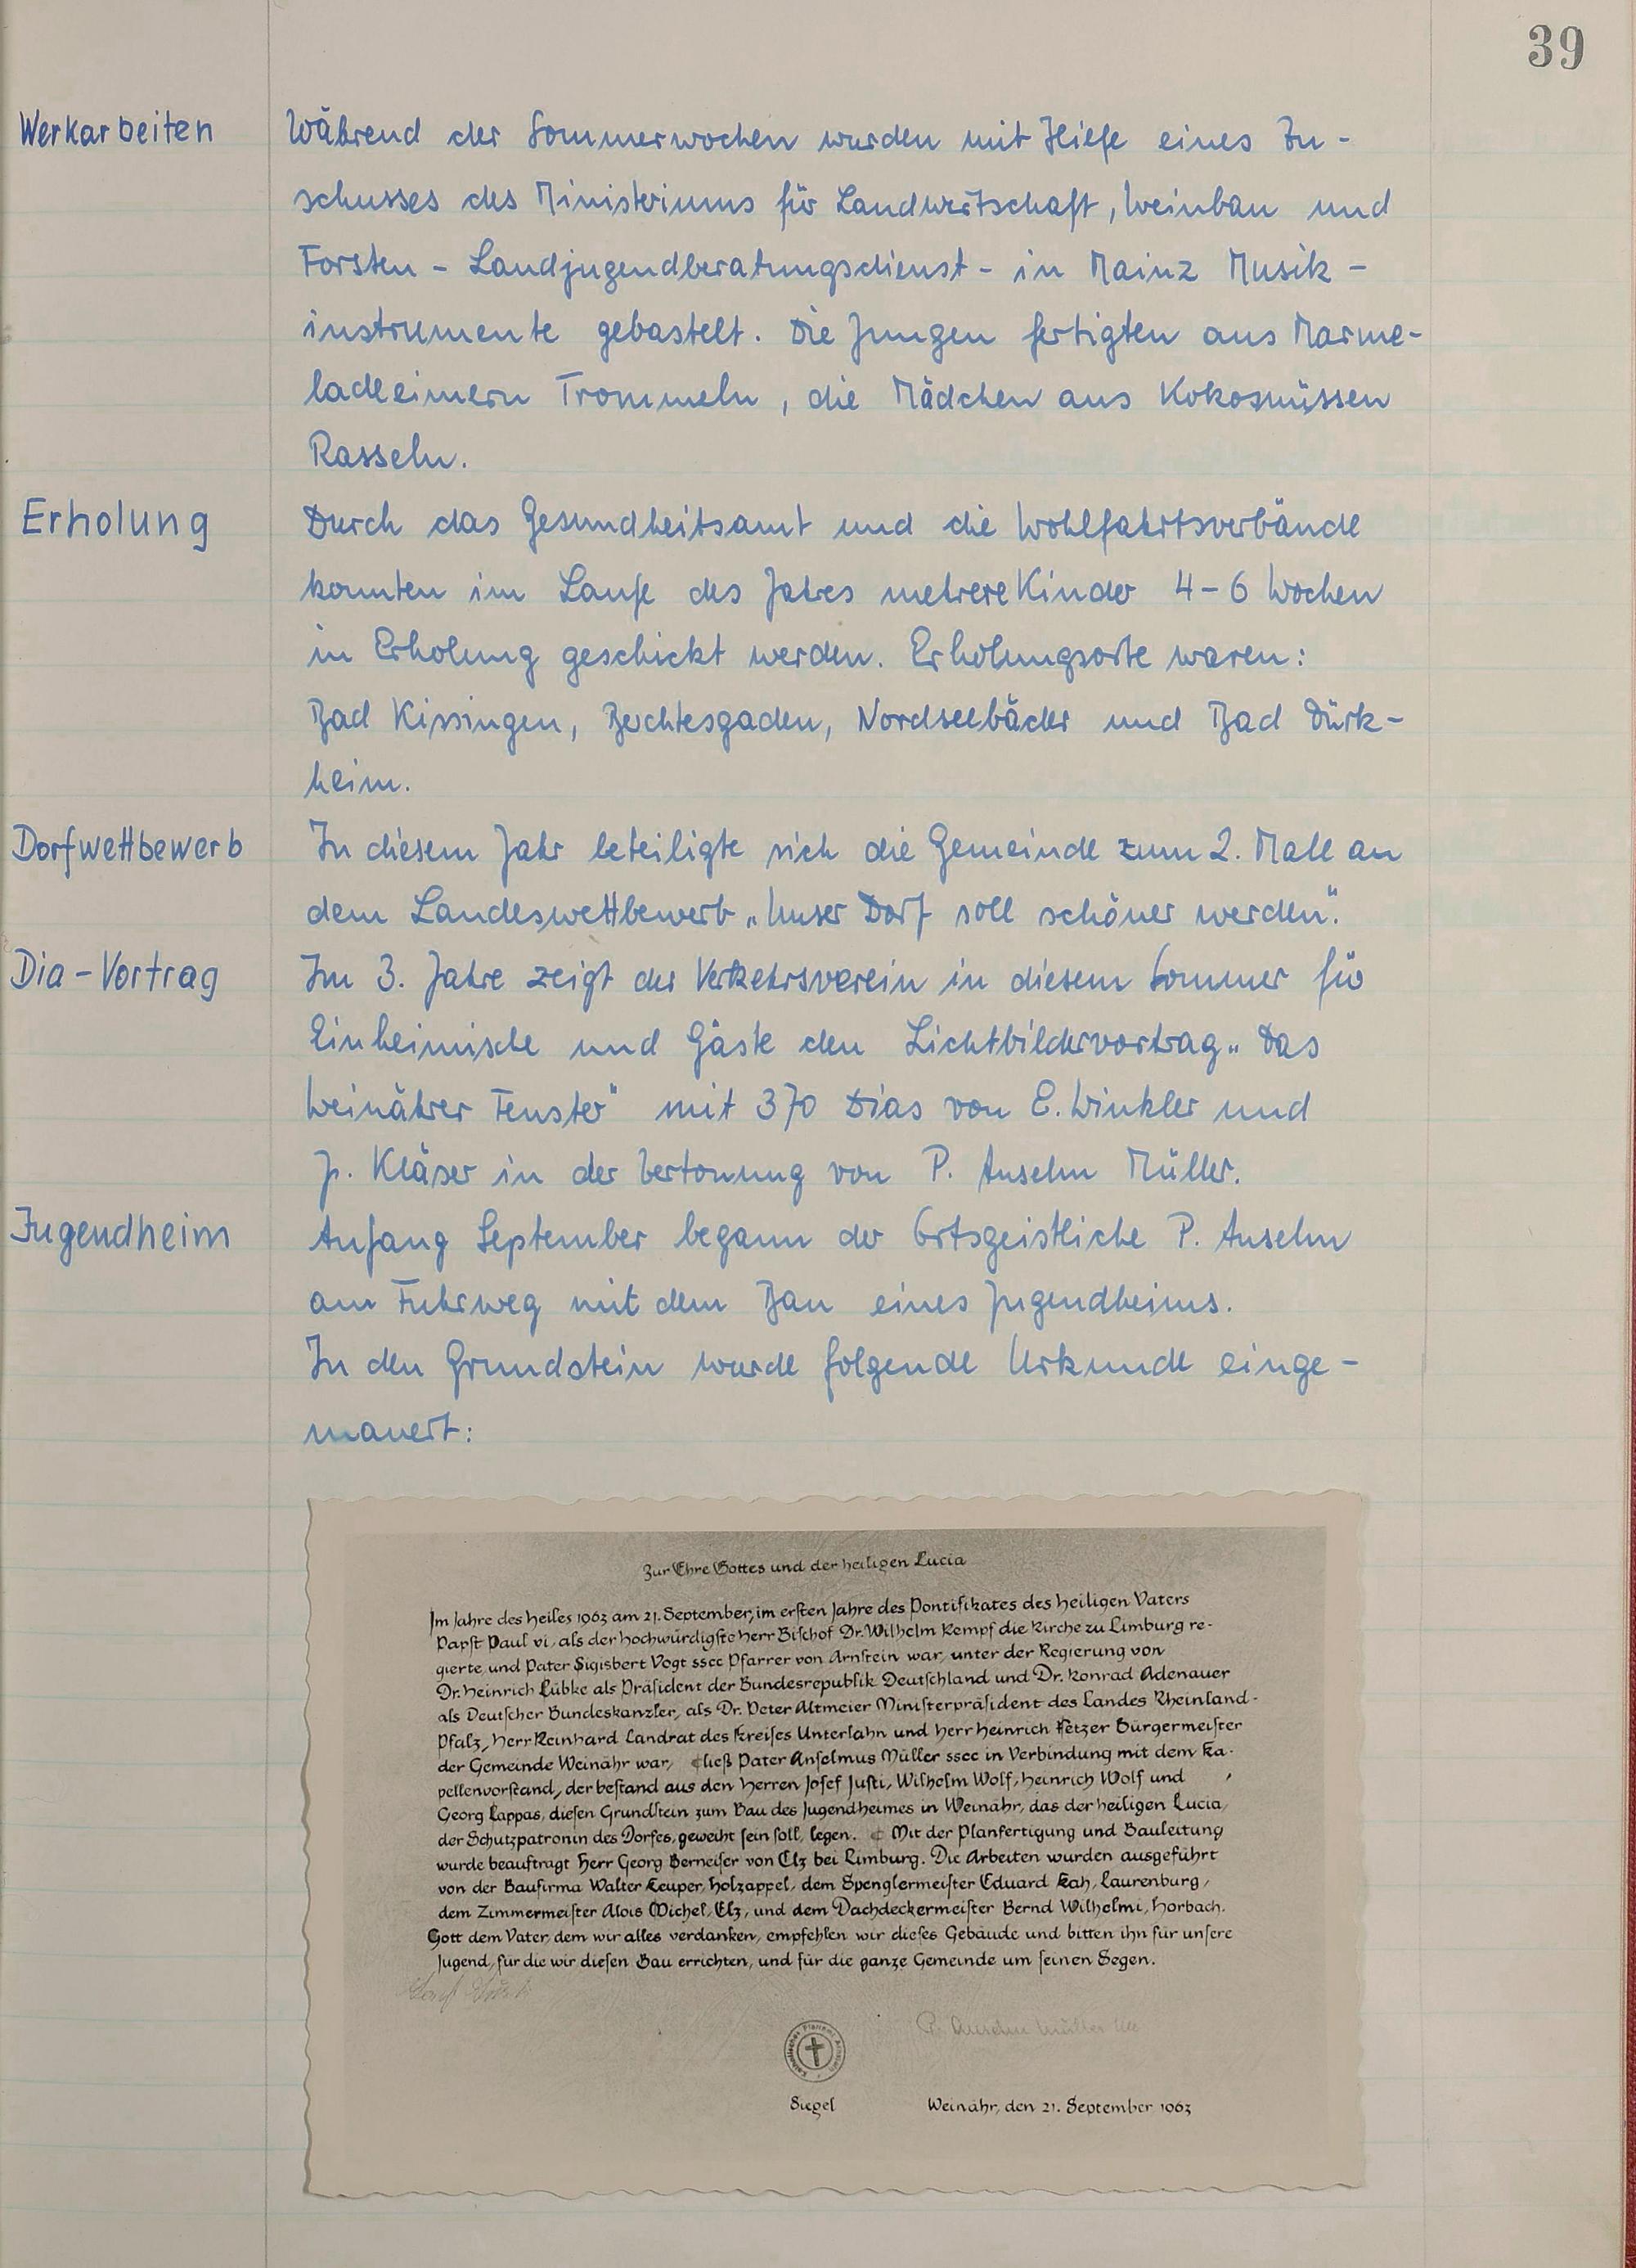 39
Werkarbeiten
Während der Sommerwochen wurden mit Hilfe eines Zu-
schusses des Ministeriums für Landwirtschaft, Weinbau und
Forsten - Landjugendberatungsdienst - in Mainz Musik-
instrumente gebastelt. Die Jungen fertigten aus Marme-
ladeeimern Trommeln, die Mädchen aus Kokosnüssen
Rasseln.
Erholung
Durch das Gesundheitsamt und die Wohlfahrtsverbände
konnten im Laufe des Jahres mehrere Kinder 4-6 Wochen
in Erholung geschickt werden. Erholungsorte waren:
Bad Kissingen, Berchtesgaden, Nordseebäder und Bad Dürk-
heim.
Dorfwettbewerb
In diesem Jahr beteiligte sich die Gemeinde zum 2. Male an
dem Landeswettbewerb „Unser Dorf soll schöner werden".
Dia-Vortrag
Im 3. Jahre zeigt der Verkehrsverein in diesem Sommer für
Einheimische und Gäste den Lichtbildervortrag „Das
Weinährer Fenster" mit 370 Dias von E. Winkler und
J. Kläser in der Vertonung von P. Anselm Müller.
Jugendheim
Anfang September begann der Ortsgeistliche P. Anselm
am Fuhrweg mit dem Bau eines Jugendheims.
In den Grundstein wurde folgende Urkunde einge-
mauert:
Zur Ehre Gottes und der heiligen Lucia
Im Jahre des Heiles 1963 am 21. September, im ersten Jahre des Pontifikates des heiligen Vaters
Papst Paul VI, als der hochwürdigste Herr Bischof Dr. Wilhelm Kempf die Kirche zu Limburg re-
gierte, und Pater Sigisbert Vogt sscc Pfarrer von Arnstein war, unter der Regierung von
Dr. Heinrich Lübke als Präsident der Bundesrepublik Deutschland und Dr. Konrad Adenauer
als Deutscher Bundeskanzler, als Dr. Peter Altmeier Ministerpräsident des Landes Rheinland-
Pfalz, Herr Reinhard Landrat des Kreises Unterlahn und Herr Heinrich Fetzer Bürgermeister
der Gemeinde Weinähr war, ließ Pater Anselmus Müller sscc in Verbindung mit dem Ka-
pellenvorstand, der bestand aus den Herren Josef Justi, Wilhelm Wolf, Heinrich Wolf und
Georg Lappas, diesen Grundstein zum Bau des Jugendheimes in Weinähr, das der heiligen Lucia,
der Schutzpatronin des Dorfes, geweiht sein soll, legen. Mit der Planfertigung und Bauleitung
wurde beauftragt Herr Georg Berneiser von Elz bei Limburg. Die Arbeiten wurden ausgeführt
von der Baufirma Walter Keuper, Holzappel, dem Spenglermeister Eduard Kah, Laurenburg,
dem Zimmermeister Alois Michel, Elz, und dem Dachdeckermeister Bernd Wilhelmi, Horbach.
Gott dem Vater, dem wir alles verdanken, empfehlen wir dieses Gebäude und bitten ihn für unsere
Jugend, für die wir diesen Bau errichten, und für die ganze Gemeinde um seinen Segen.
P. Anselm Müller
Siegel
Weinähr, den 21. September 1963